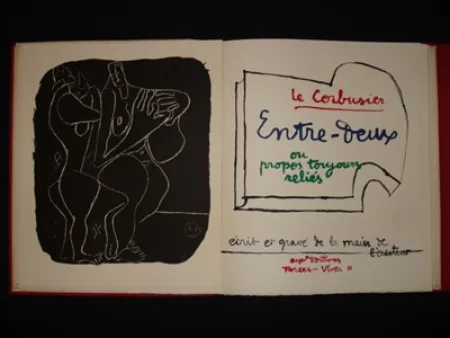 Le Corbusier
Entre-deux
ou
propos toujours
reliés
écrit et gravé de la main de
aux Editions
Forces-Vives